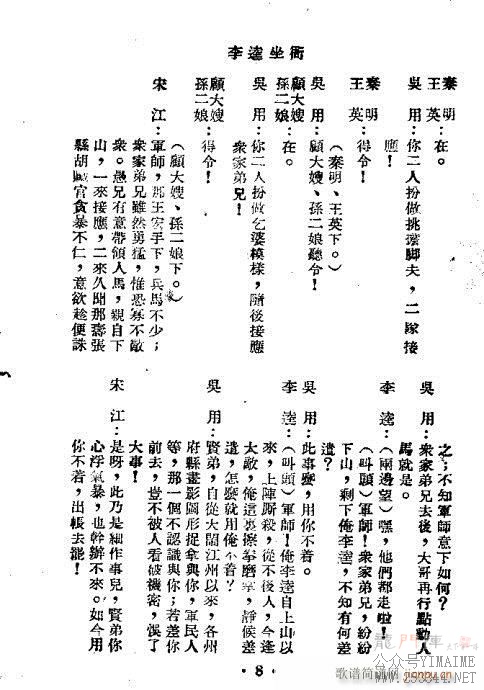 李逵坐衙
秦明
王英：在。
吳用：你二人扮做挑擔脚夫，二隊接
應！
秦明
王英：得令！
（秦明、王英下。）
吳用：顧大嫂、孫二娘聽令！
顧大嫂
孫二娘：在。
吳用：你二人扮做乞婆模樣，隨後接應
衆家弟兄！
顧大嫂
孫二娘：得令！
（顧大嫂、孫二娘下。）
宋江：軍師，那王宏手下，兵馬不少；
衆家弟兄雖然勇猛，惟恐寡不敵
衆。愚兄有意帶領人馬，親自下
山，一來接應，二來久聞那壽張
縣胡圖官貪暴不仁，意欲趁便誅
之；不知軍師意下如何？
吳用：衆家弟兄去後，大哥再行點動人
馬就是。
李逵：（兩邊望）嘿，他們都走啦！
（叫頭）軍師！衆家弟兄，紛紛
下山，剩下俺李逵，不知有何差
遣？
吳用：此事變，用你不着。
李逵：（叫頭）軍師！俺李逵自上山以
來，上陣厮殺，從不後人，今逢
大敵，俺這裏擦拳磨掌，靜候差
遣，怎麼就用俺不着？
吳用：賢弟，自從大鬧江州以來，各州
府縣畫影圖形捉拿與你，軍民人
等，那一個不認識與你；若差你
前去，豈不被人看破機密，悞了
大事！
宋江：是呀，此乃是細作事兒，賢弟你
心浮氣暴，也幹辦不來。如今用
你不着，出帳去罷！
·8·
龍門陣
公众号YIMAIME
歌谱简谱网